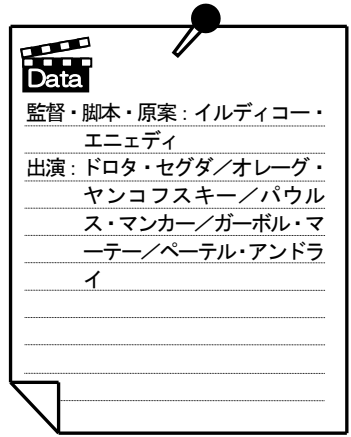 Data
監督・脚本・原案：イルディコー・
エニェディ
出演：ドロタ・セグダ／オレーグ・
ヤンコフスキー／パウル
ス・マンカー／ガーボル・マ
ーテー／ペーテル・アンドラ
イ